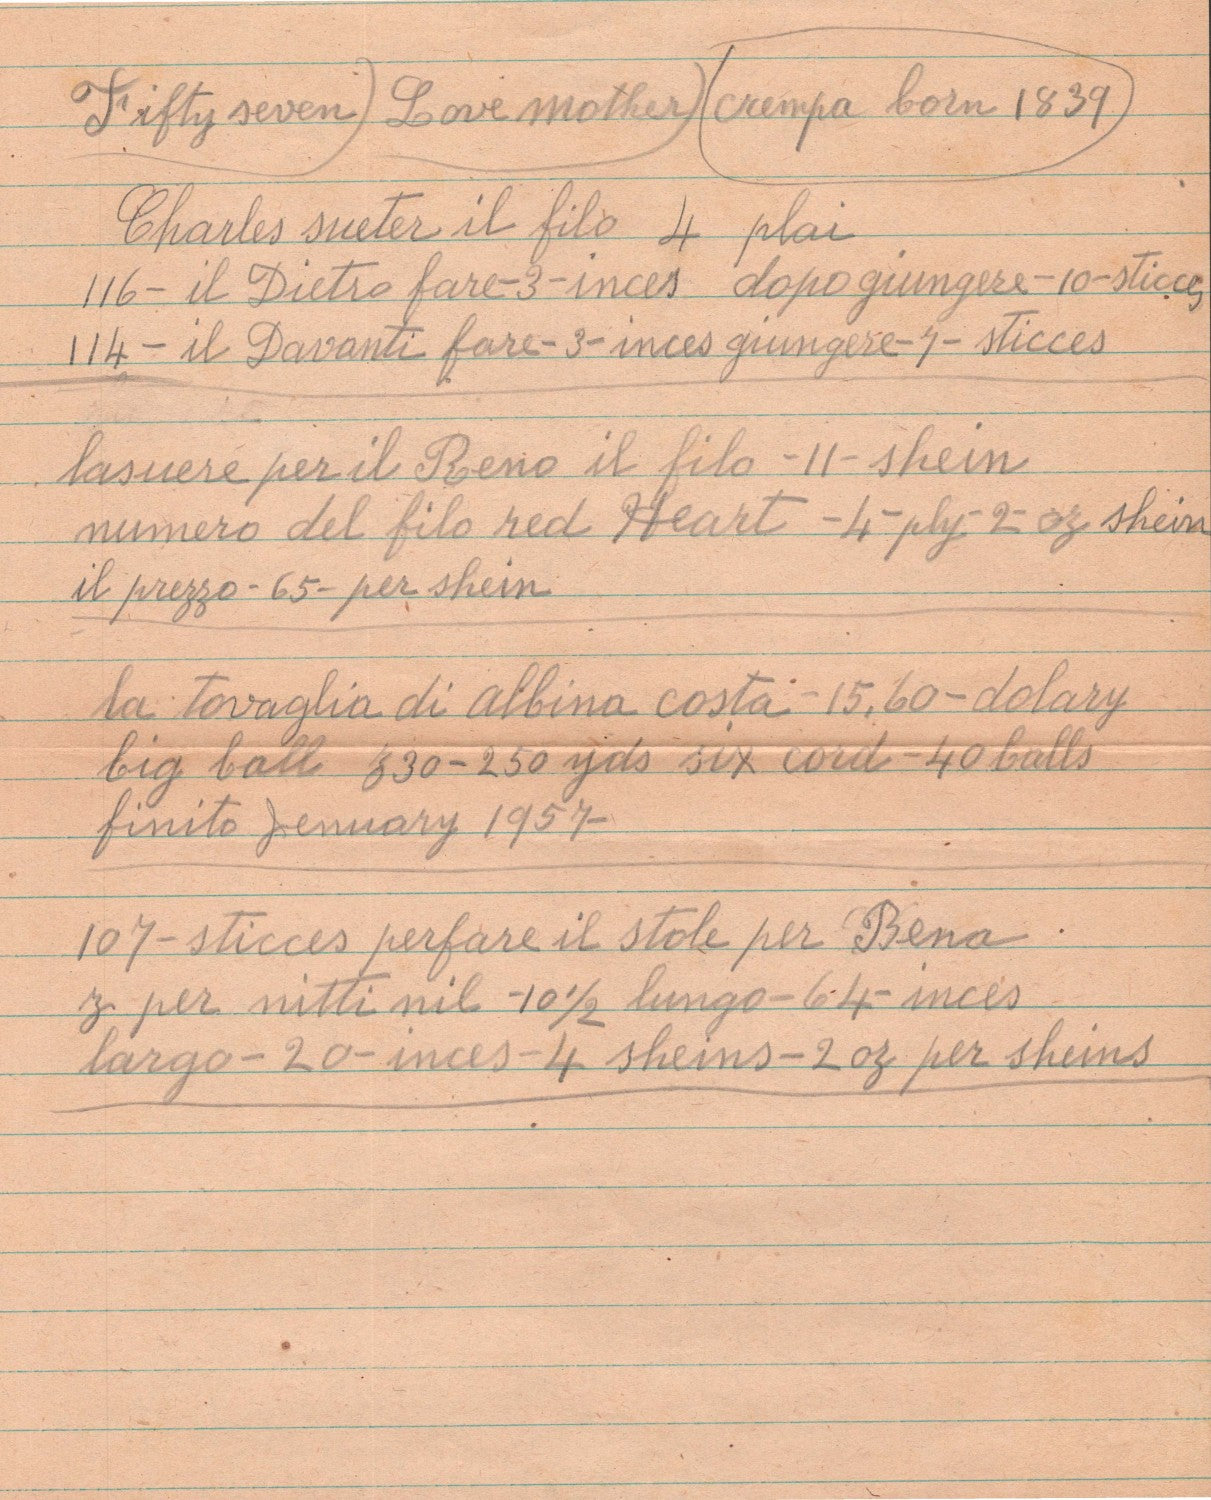 Fifty seven) Love mother) (crempa born 1839)
Charles sueter il filo 4 plai
116- il Dietro fare-3-inces dopo giungere-10-sticces
114- il Davanti fare-3-inces giungere-7- sticces
lasuere per il Reno il filo -11- shein
numero del filo red Heart -4-ply-2-oz shein
il prezzo-65-per shein
la tovaglia di albina costa-15.60-dolary
big ball 330-250 yds six cord-40 balls
finito Jenuary 1957-
107-sticces perfare il stole per Bena
z per nitti nil -10½ lungo-64-inces
largo-20-inces-4 sheins-2 oz per sheins